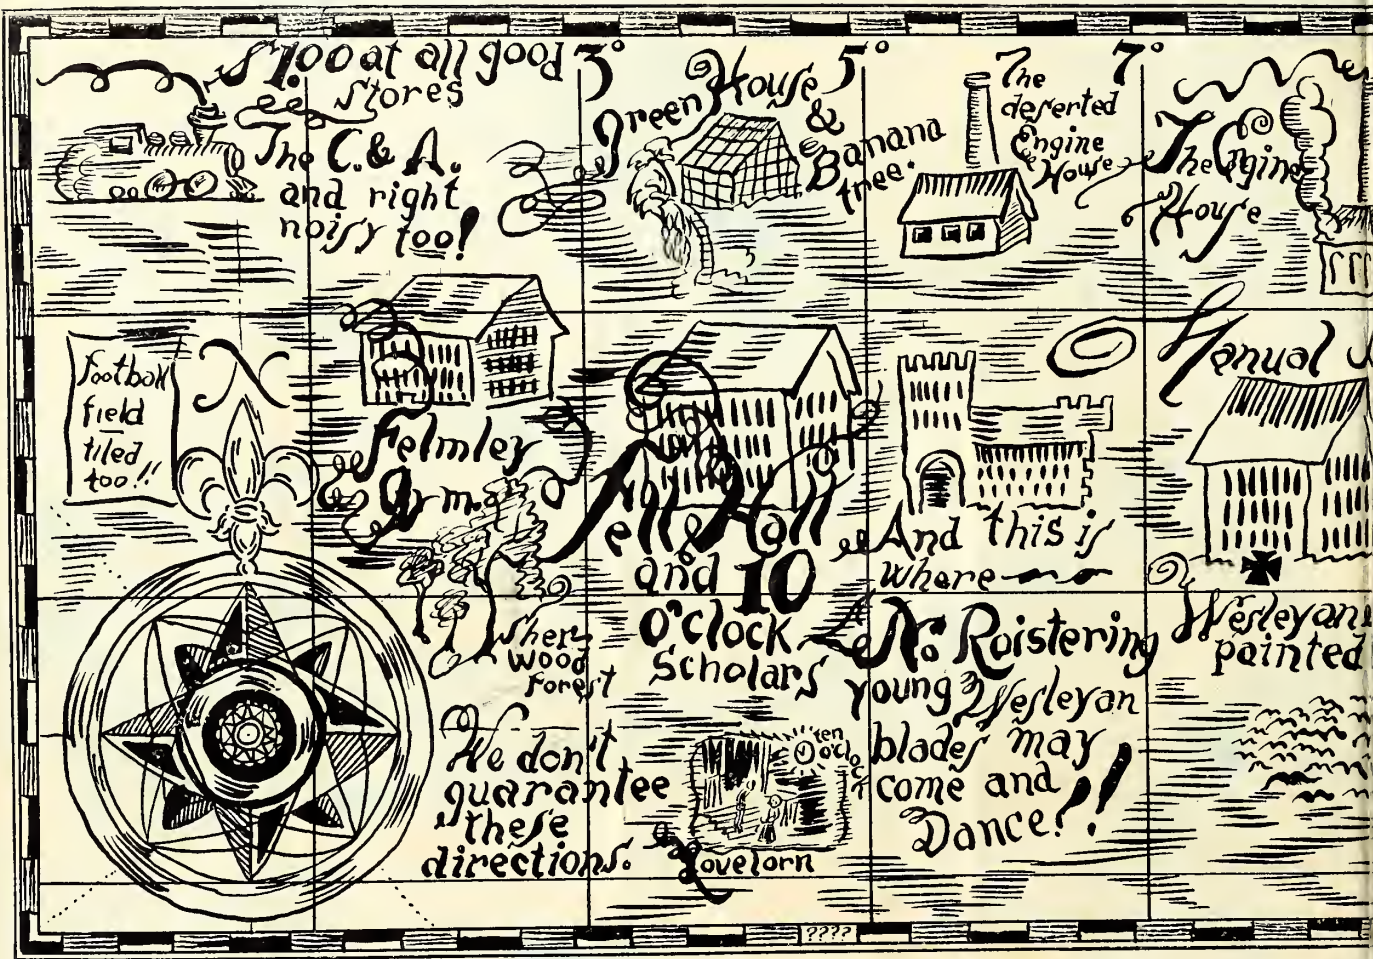 $1.00 at all good
Stores
The C. & A.
and right
noisy too!
3°
Green House
&
Banana
tree.
5°
The
deserted
Engine
House
7°
The Engine
House
football
field
tiled
too!!
Felmley
Gym.
Sher-
wood
forest
Fell Hall
and 10
o'clock
Scholars
And this is
where
No Roistering
young Wesleyan
blades may
come and
Dance!!
Manual
Wesleyan
painted
We don't
guarantee
these
directions.
ten
o'cloc
k
Lovelorn
????